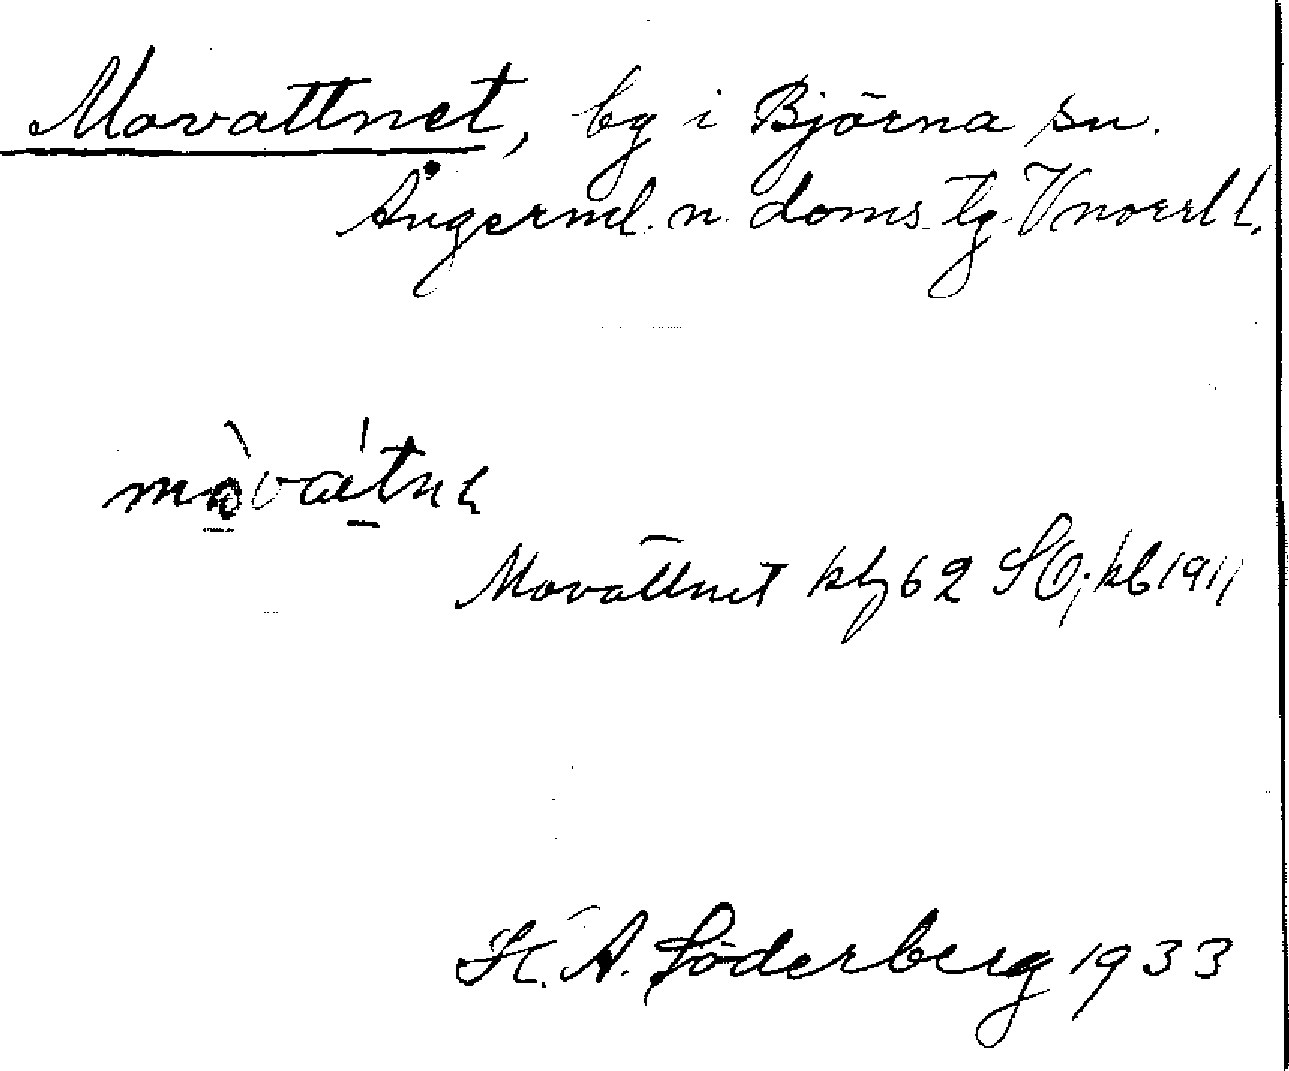 Movattnet, by i Björna sn.
Ångerml. n. doms. tg. Vnorrl l.
mòvátnɛ
Movattnet kbg 62 SO; kb 1911
H. A. Söderberg 1933